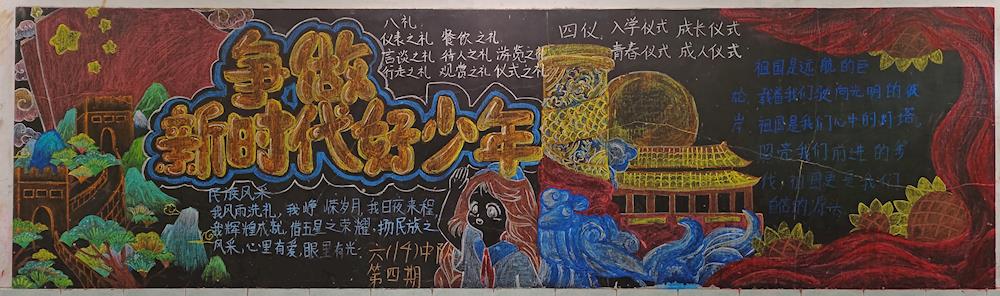 争做
新时代好少年
八礼:
仪表之礼 餐饮之礼
言谈之礼 待人之礼 游览之礼
行走之礼 观赏之礼 仪式之礼
四仪, 入学仪式 成长仪式
青春仪式 成人仪式
祖国是远航的巨
轮,载着我们驶向光明的彼
岸,祖国是我们心中的灯塔,
照亮我们前进的步
伐,祖国更是我们
自信的
民族风采
我风雨洗礼,我峥嵘岁月,我日夜来程,
我辉煌成就,借五星之荣耀,扬民族之
风采,心里有爱,眼里有光.
六(14)中队
第四期